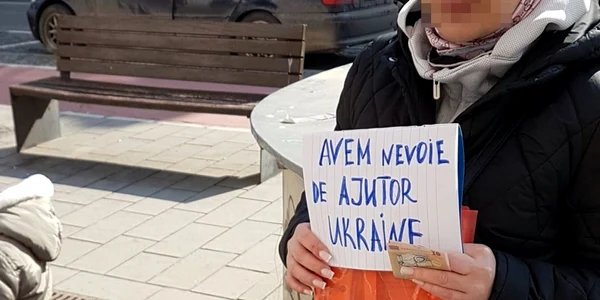 AVEM NEVOIE
DE AJUTOR
UKRAINE